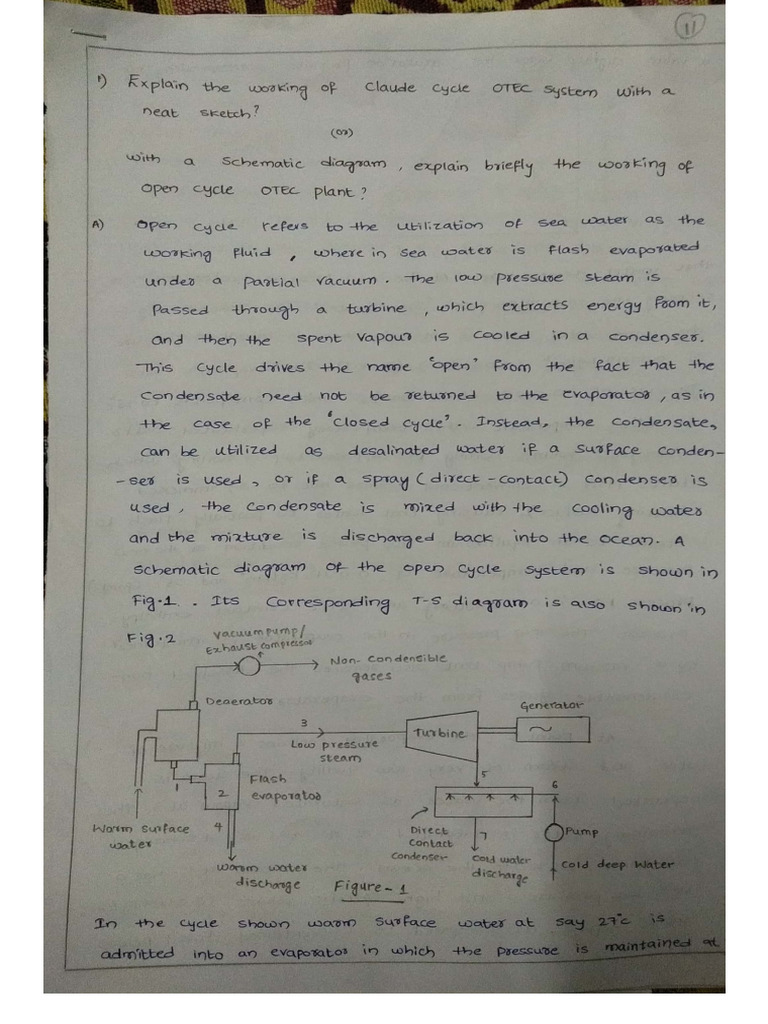 11
1) Explain the working of Claude cycle OTEC system with a
neat sketch?
(or)
with a schematic diagram, explain briefly the working of
open cycle OTEC plant?
A) open cycle refers to the utilization of sea water as the
working fluid, where in sea water is flash evaporated
under a partial vacuum. The low pressure steam is
passed through a turbine, which extracts energy from it,
and then the spent vapour is cooled in a condenser.
This cycle drives the name 'open' from the fact that the
condensate need not be returned to the evaporator, as in
the case of the 'closed cycle'. Instead, the condensate,
can be utilized as desalinated water if a surface conden-
-ser is used, or if a spray (direct-contact) condenser is
used, the condensate is mixed with the cooling water
and the mixture is discharged back into the ocean. A
schematic diagram of the open cycle system is shown in
Fig.1. Its corresponding T-S diagram is also shown in
Fig.2
vacuum pump/
Exhaust compressor
Non-condensible
gases
Deaerator
Generator
3
Turbine
Low pressure
steam
Flash
evaporator
1
2
5
6
4
Warm surface
water
Direct
contact
condenser
7
Pump
cold water
discharge
cold deep water
warm water
discharge
Figure-1
In the cycle shown warm surface water at say 27°c is
admitted into an evaporator in which the pressure is maintained at